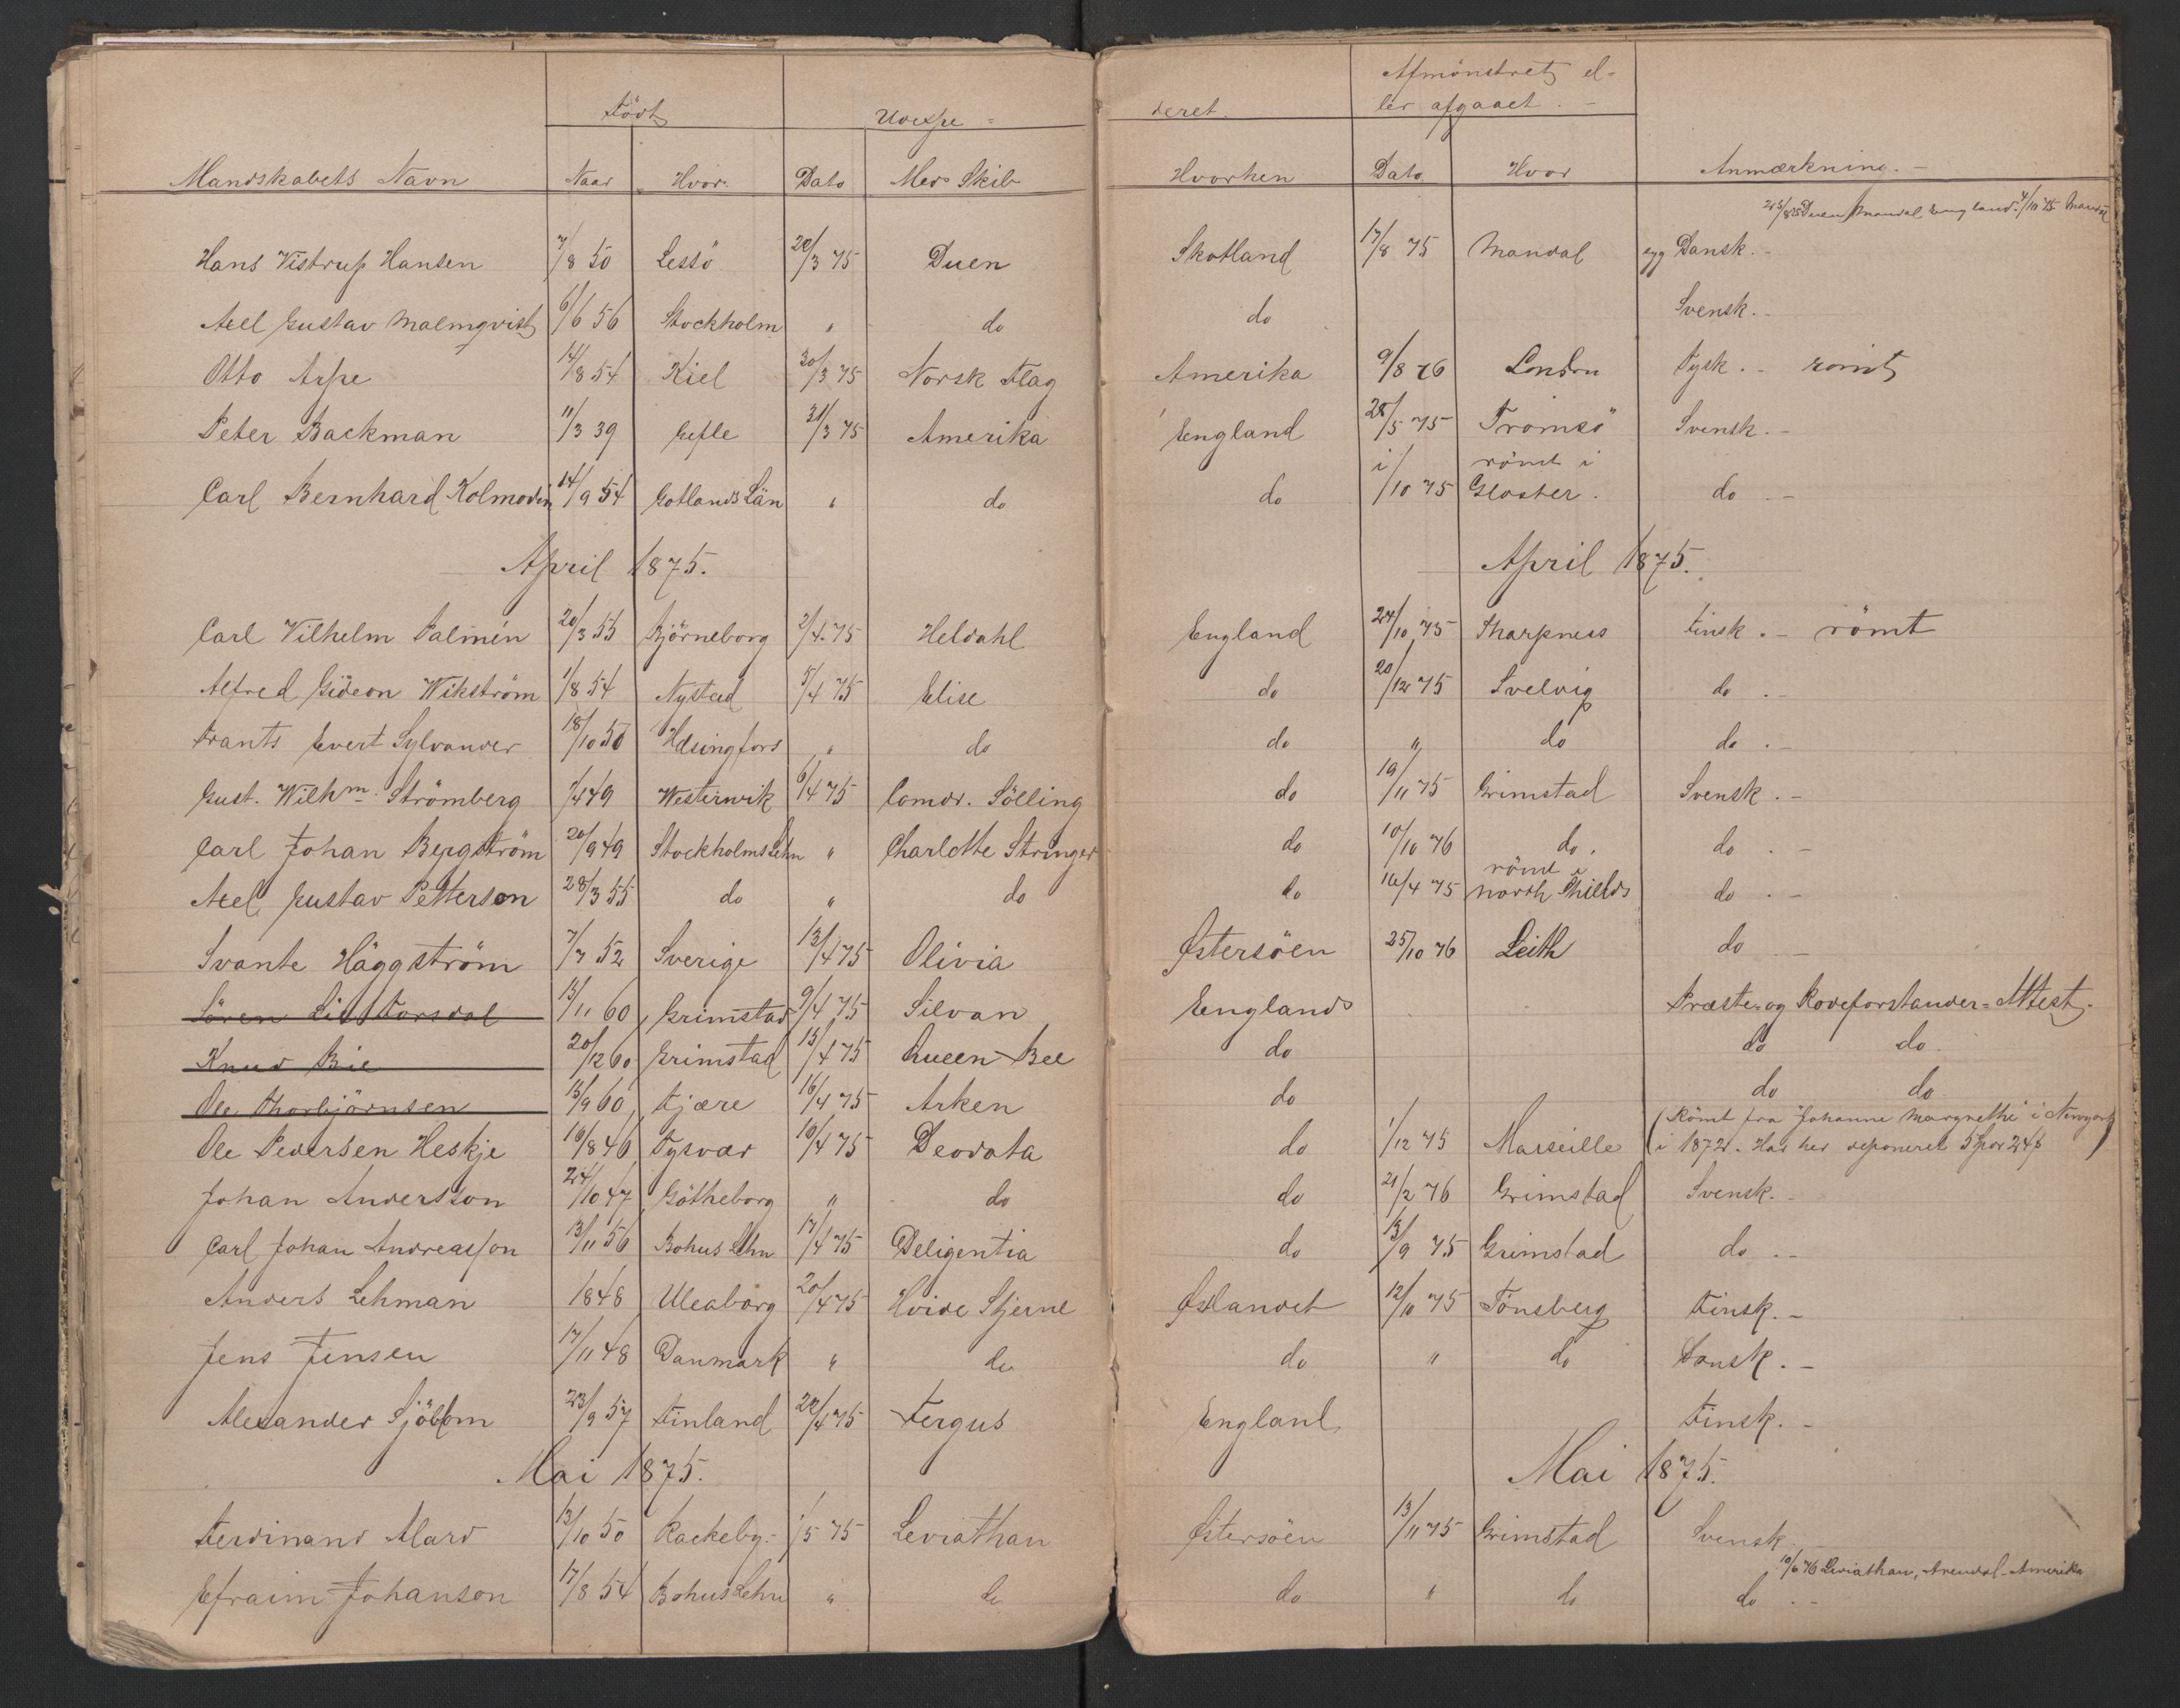 Født Udexpe= deret. Afmönstret el=
ler afgaaet. -
Mandskabets Navn Naar Hvor. Dato Med Skib Hvorhen Dato Hvor Anmærkning. -
Duen Mandal England 4/10 75 Mandal
Hans Vistrup Hansen 7/8 50 Lessö 20/3 75 Duen Skotland 17/8 75 Mandal Dansk. -
Axel Gustav Malmqvist 6/6 56 Stockholm " do do Svensk. -
Otto Arpe 14/8 54 Kiel 30/3 75 Norsk Flag Amerika 9/8 76 London Tysk. - römt
Peter Backman 11/3 39 Gefle 31/3 75 Amerika England 28/5 75 Tromsö Svensk. -
i römt i
Carl Bernhard Kolmodin 14/9 54 Gotlands Län " do do /10 75 Gloster. do. -
April 1875. April 1875.
Carl Vilhelm Palmén 20/3 55 Björneborg 2/4 75 Heldahl England 24/10 75 Sharpness Finsk. - römt
Alfred Gideon Wikström 1/8 54 Nystad 5/4 75 Elise do 20/12 75 Svelvig do. -
Frants Evert Sylvander 18/10 50 Helsingfors " do do " do do. -
Gust. Wilhm. Strömberg 7/4 49 Westerwik 6/4 75 Comdr. Sölling do 19/11 75 Grimstad Svensk. -
Carl Johan Bergström 20/9 49 Stockholms Lehn " Charlotte Stringer do 10/10 76 do. do. -
römt i
Axel Gustav Petterson 28/3 55 do " do do 16/4 75 North Shields do. -
Svante Häggström 7/7 52 Sverige 13/4 75 Olivia Østersöen 25/10 76 Leith do -
Sören Forsdal 13/11 60 Grimstad 9/4 75 Silvan England Præste- og Rodeforstander=Attest.
Knud Bie 20/12 60 Grimstad 15/4 75 Queen Bee do do do
Ole Thorbjörnsen 13/9 60 Fjære 16/4 75 Arken do do do
Ole Pedersen Heskje 16/8 46 Tysvær 10/4 75 Deodata do 1/12 75 Marseille (Römt fra "Johanne Margrethe" i Newyork
i 1872. Har her deponeret 5 Spd 24 ß)
Johan Andersson 24/10 47 Götheborg " do do 21/2 76 Grimstad Svensk. -
Carl Johan Andreasson 13/11 56 Bohus Lehn 17/4 75 Deligentia do 13/9 75 Grimstad do. -
Anders Lehman 1848 Uleaborg 20/4 75 Hvide Stjerne Østlandet 12/10 75 Tönsberg Finsk. -
Jens Jensen 17/11 48 Danmark " do do " do Dansk. -
Alexander Sjöblom 23/9 57 Finland 22/4 75 Fergus England Finsk. -
Mai 1875. Mai 1875.
Ferdinand Alard 13/10 50 Rackeby. - /5 75 Leviathan Østersöen 13/11 75 Grimstad Svensk. -
10/6 76 Leviathan, Arendal - Amerika
Efraim Johanson 17/8 54 Bohus Lehn " do do " do do. -